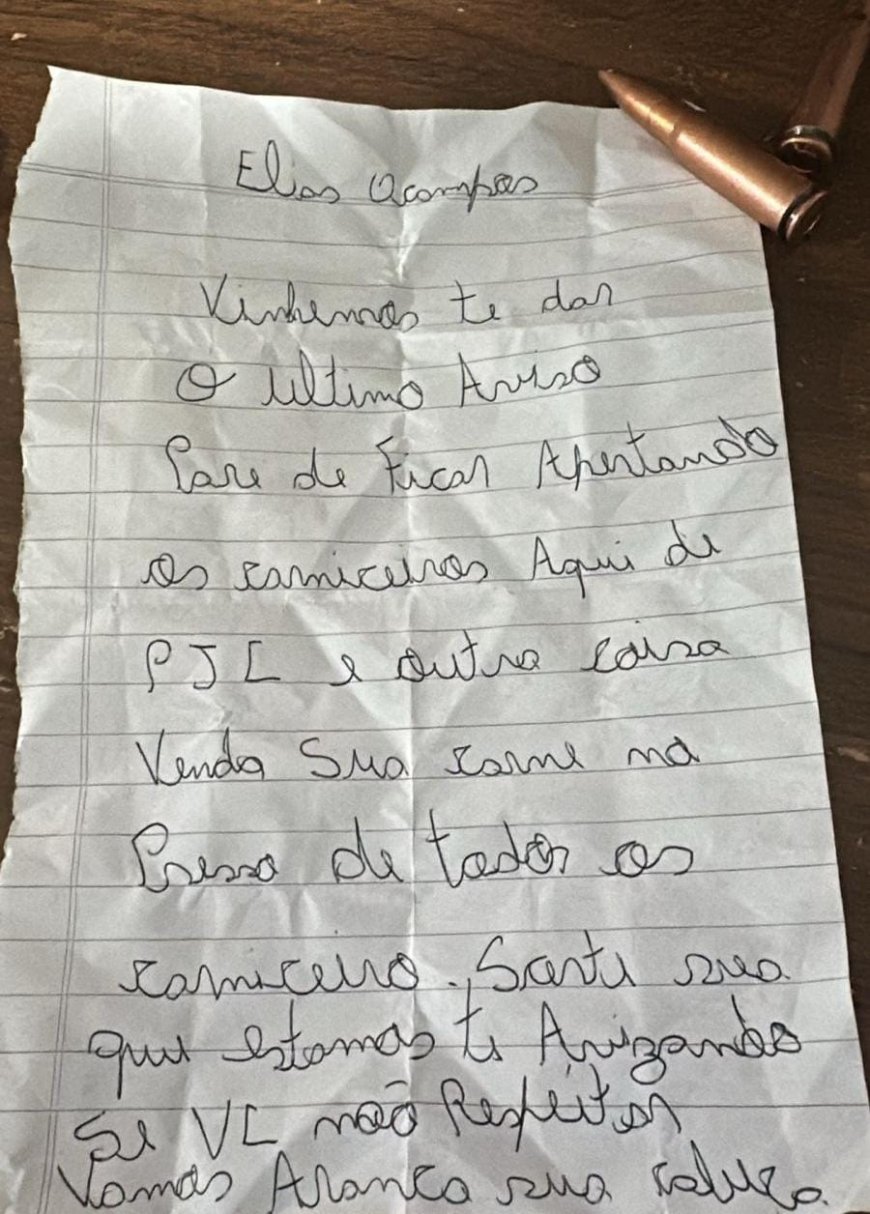 Elias Acampas
Vinhemos te dar
o ultimo Aviso
Pare de Ficar Apertando
os carniceiros Aqui de
PJC e outra coisa
Venda Sua carne na
Preso de todos os
carniceiro. Sorti sua
que estamos ti Avizando
Se VC não Respeitar
Vamos Aranca sua cabeça